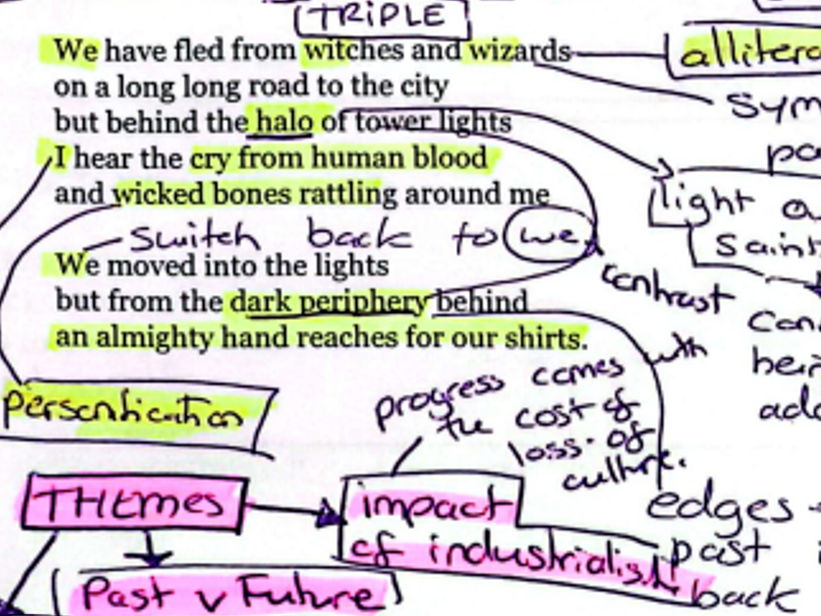 TRIPLE
We have fled from witches and wizards
on a long long road to the city
but behind the halo of tower lights
I hear the cry from human blood
and wicked bones rattling around me
switch back to we
We moved into the lights
but from the dark periphery behind
an almighty hand reaches for our shirts.
light
contrast
with
progress comes
the cost of
loss of
culture.
THEMES
impact
of
Past v Future
edges
past
back